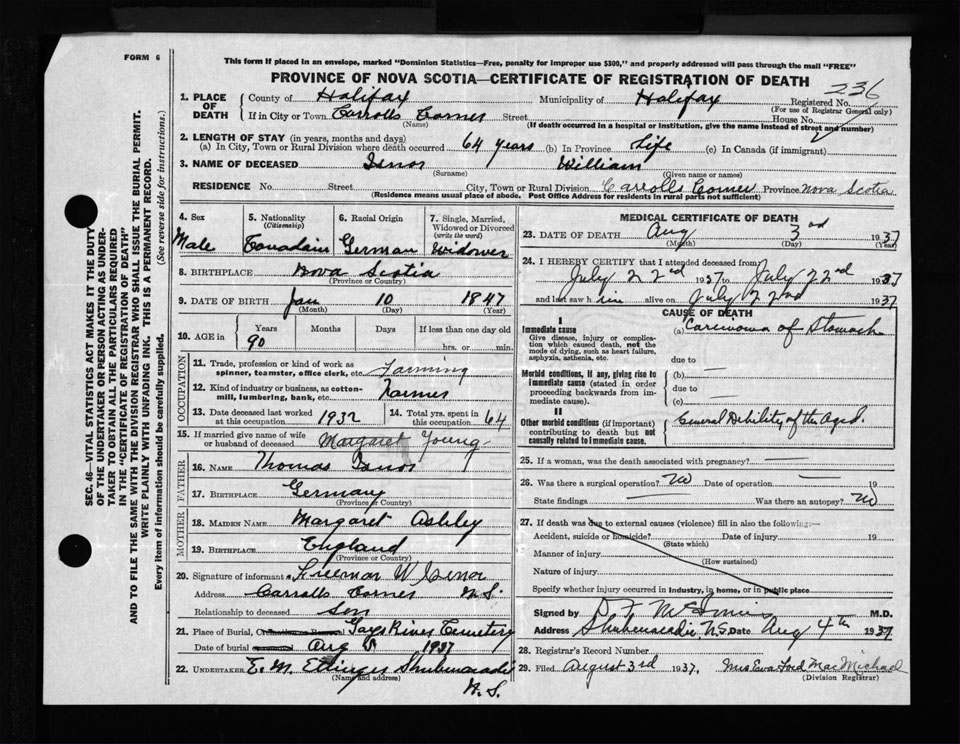 FORM 6
This form if placed in an envelope, marked "Dominion Statistics—Free, penalty for improper use $300," and properly addressed will pass through the mail "FREE"
PROVINCE OF NOVA SCOTIA—CERTIFICATE OF REGISTRATION OF DEATH
236
1. PLACE OF DEATH
County of Halifax Municipality of Halifax Registered No.
(For use of Registrar General only)
If in City or Town Carrolls Corner Street House No.
(Name) (If death occurred in a hospital or institution, give the name instead of street and number)
2. LENGTH OF STAY (in years, months and days)
(a) In City, Town or Rural Division where death occurred 64 years (b) In Province Life (c) In Canada (if immigrant)
3. NAME OF DECEASED Isnor William
(Surname) (Given name or names)
RESIDENCE No. Street City, Town or Rural Division Carrolls Corner Province Nova Scotia
(Residence means usual place of abode. Post Office Address for residents in rural parts not sufficient)
4. Sex
Male
5. Nationality (Citizenship)
6. Racial Origin
German
7. Single, Married, Widowed or Divorced (write the word)
Widower
8. BIRTHPLACE Nova Scotia
(Province or Country)
9. DATE OF BIRTH Jan 10 1847
(Month) (Day) (Year)
10. AGE in Years Months Days If less than one day old
90 hrs. or min.
OCCUPATION
11. Trade, profession or kind of work as spinner, teamster, office clerk, etc. Farming
12. Kind of industry or business, as cotton-mill, lumbering, bank, etc. Farmer
13. Date deceased last worked at this occupation 1932
14. Total yrs. spent in 64
15. If married give name of wife or husband of deceased Margaret Young
FATHER
16. NAME Thomas Isnor
17. BIRTHPLACE Germany
(Province or Country)
MOTHER
18. MAIDEN NAME Margaret Ashley
19. BIRTHPLACE England
(Province or Country)
20. Signature of informant Freeman W Isnor
Address Carrolls Corner N.S.
Relationship to deceased Son
21. Place of Burial, Cremation or Removal Gays River Cemetery
Date of burial Aug 5 1937
22. UNDERTAKER E. M. Ettinger Shubenacadie
(Name and address)
N.S.
MEDICAL CERTIFICATE OF DEATH
23. DATE OF DEATH Aug 3rd 1937
(Month) (Day) (Year)
24. I HEREBY CERTIFY that I attended deceased from
July 22nd 1937 to July 22nd 1937
and last saw him alive on July 22nd 1937
CAUSE OF DEATH
I
Immediate cause
Give disease, injury or complication which caused death, not the mode of dying, such as heart failure, asphyxia, asthenia, etc.
(a) Carcinoma of Stomach
due to
Morbid conditions, if any, giving rise to immediate cause (stated in order proceeding backwards from immediate cause).
(b) —
due to
(c) —
II
Other morbid conditions (if important) contributing to death but not causally related to immediate cause.
General Debility of the Aged.
25. If a woman, was the death associated with pregnancy? —
26. Was there a surgical operation? No Date of operation — 19
State findings — Was there an autopsy? No
27. If death was due to external causes (violence) fill in also the following:—
Accident, suicide or homicide? Date of injury 19
(State which)
Manner of injury
(How sustained)
Nature of injury
Specify whether injury occurred in industry, in home, or in public place
Signed by M.D.
Address Shubenacadie, N.S. Date Aug 4th 1937
28. Registrar's Record Number
29. Filed August 3rd 1937. Mrs Ford MacMichael
(Division Registrar)
SEC. 46—VITAL STATISTICS ACT MAKES IT THE DUTY
OF THE UNDERTAKER OR PERSON ACTING AS UNDER-
TAKER TO OBTAIN ALL THE PARTICULARS REQUIRED
IN THE "CERTIFICATE OF REGISTRATION OF DEATH"
AND TO FILE THE SAME WITH THE DIVISION REGISTRAR WHO SHALL ISSUE THE BURIAL PERMIT.
WRITE PLAINLY WITH UNFADING INK. THIS IS A PERMANENT RECORD.
Every item of information should be carefully supplied. (See reverse side for instructions.)